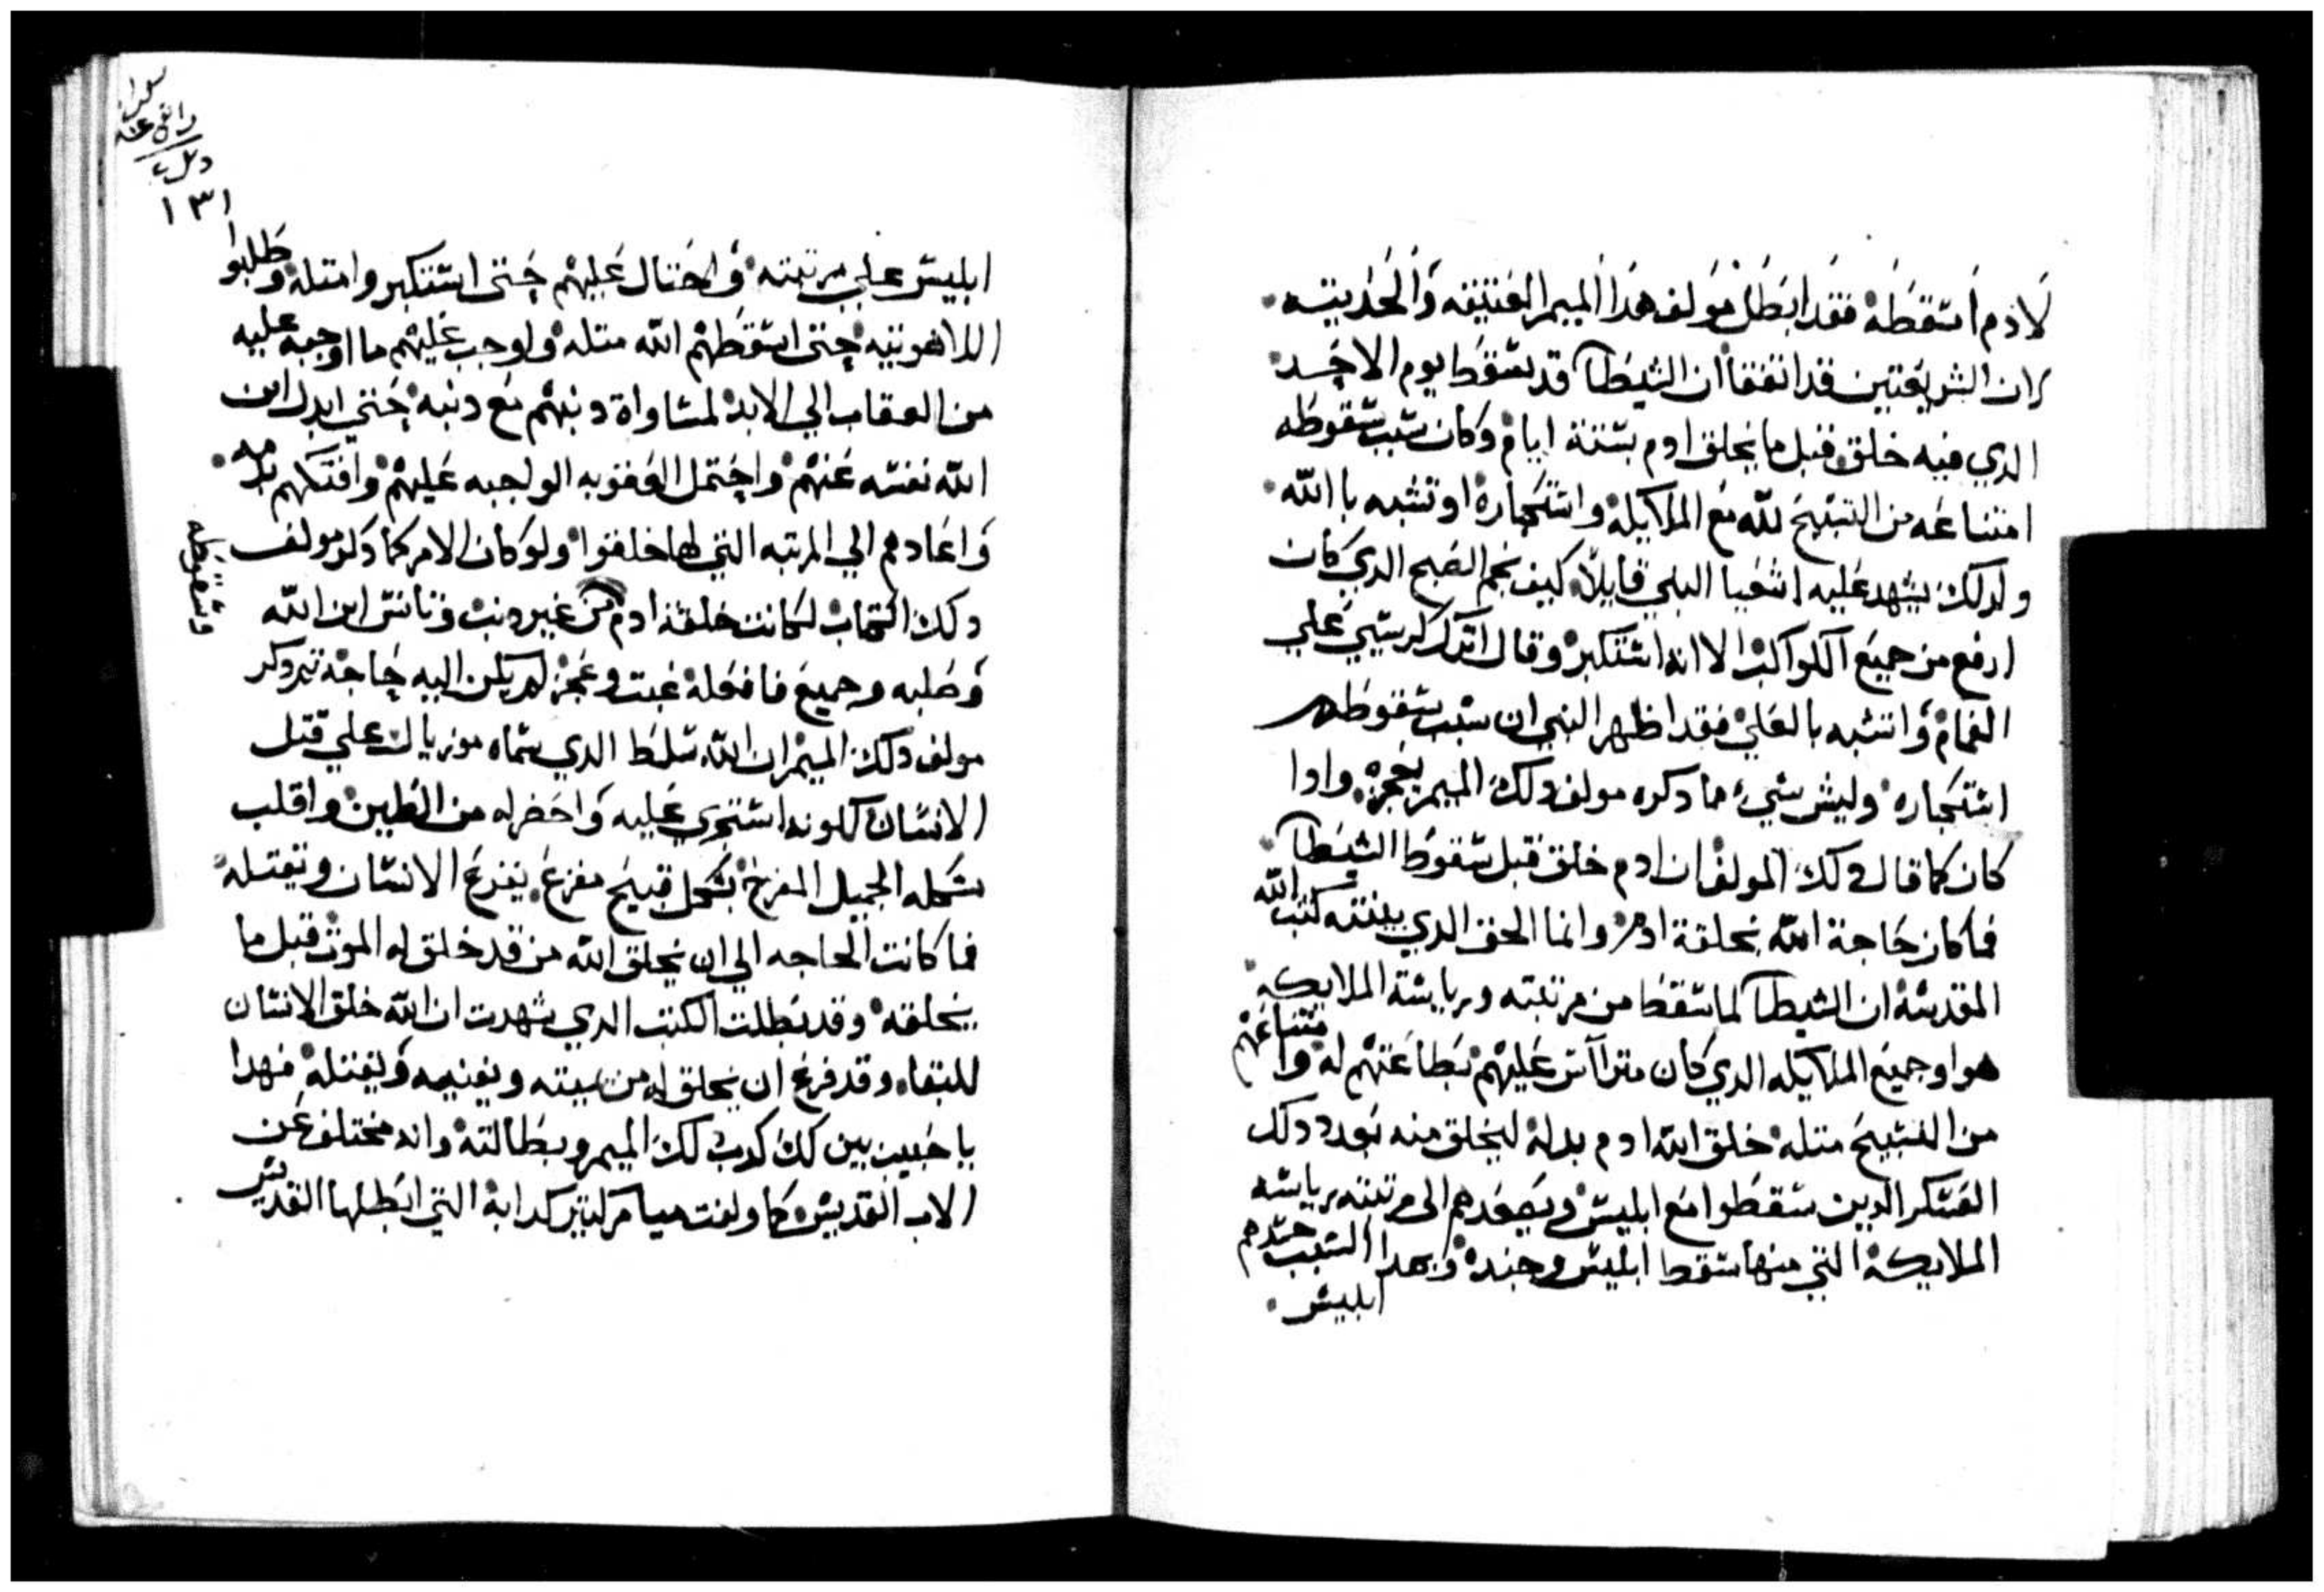 لادم اسقطه فقد ابطل مولف هدا الميمر العتيقه والحديته
لان الشريعتين قد اتفقا ان الشيطا قد سقط يوم الاحد
الدي فيه خلق قبل ما يخلق ادم بستة ايام وكان سبب سقوطه
امتناعه من التسبيح لله مع الملايكه واستكباره او تشبه با الله
ولدلك يشهد عليه اشعيا النبي قايلا كيف نجم الصبح الدي كان
ارفع من جميع الكواكب الا انه استكبر وقال اترك كرسيي علي
الغمام واتشبه بالعلي فقد اظهر النبي ان سبب سقوطه
استكباره وليس شي ما دكره مولف دلك الميمر بعجزه وادا
كان كما قال دلك المولف ان ادم خلق قبل سقوط الشيطا
فما كان حاجة الله بخلقة ادم وانما الحق الدي بينته كتب الله
المقدسه ان الشيطا لما سقط من مرتبته ورياسة الملايكه
هو وجميع الملايكه الدي كان متراس عليهم بطاعتهم له وامتناعهم
من التسبيح متله خلق الله ادم بدله ليخلق منه بعدد دلك
العسكر الدين سقطوا مع ابليس ويصعدهم الى مرتبته برياسه
الملايكة التي منها سقط ابليس وجنده وبهدا السبب حسدهم
ابليس
١٣١
ابليس علي مرتبته واحتال عليهم حتي استكبروا متله وطلبوا
اللاهوتيه حتي اسقطهم الله متله ولوجب عليهم ما اوجبه عليه
من العقاب الي الابد لمساواة دنبهم مع دنبه حتي ابدل ابن
الله نفسه عنهم واحتمل العقوبه الواجبه عليهم وافتكهم بدمه
واعادهم الي المرتبه التي لها خلقوا ولو كان الامر كما دكر مولف
دلك الكتاب لكانت خلقة ادم من غير دنب وتانس ابن الله
وصلبه وجميع ما فعله عبت وعجز لم يكن اليه حاجة تم دكر
مولف دلك الميمر ان الله سلط الدي سماه موريال علي قتل
الانسان لكونه استجري عليه واحضر له من الطين واقلب
شكله الجميل المفرح بشكل قبيح مفزع يفزع الانسان ويقتله
فما كانت الحاجه الي ان يخلق الله من قد خلق له الموت قبل ما
يخلقه وقد بطلت الكتب الدي شهدت ان الله خلق الانسان
للبقاء وقد فرغ ان يخلق له من يميته ويفنيه ويقتله فهدا
يا حبيب بين لك كدب دلك الميمر وبطالته وانه مختلف عن
الاب القديس كما ولفت ميامر كتير كدابة التي ابطلها القديس